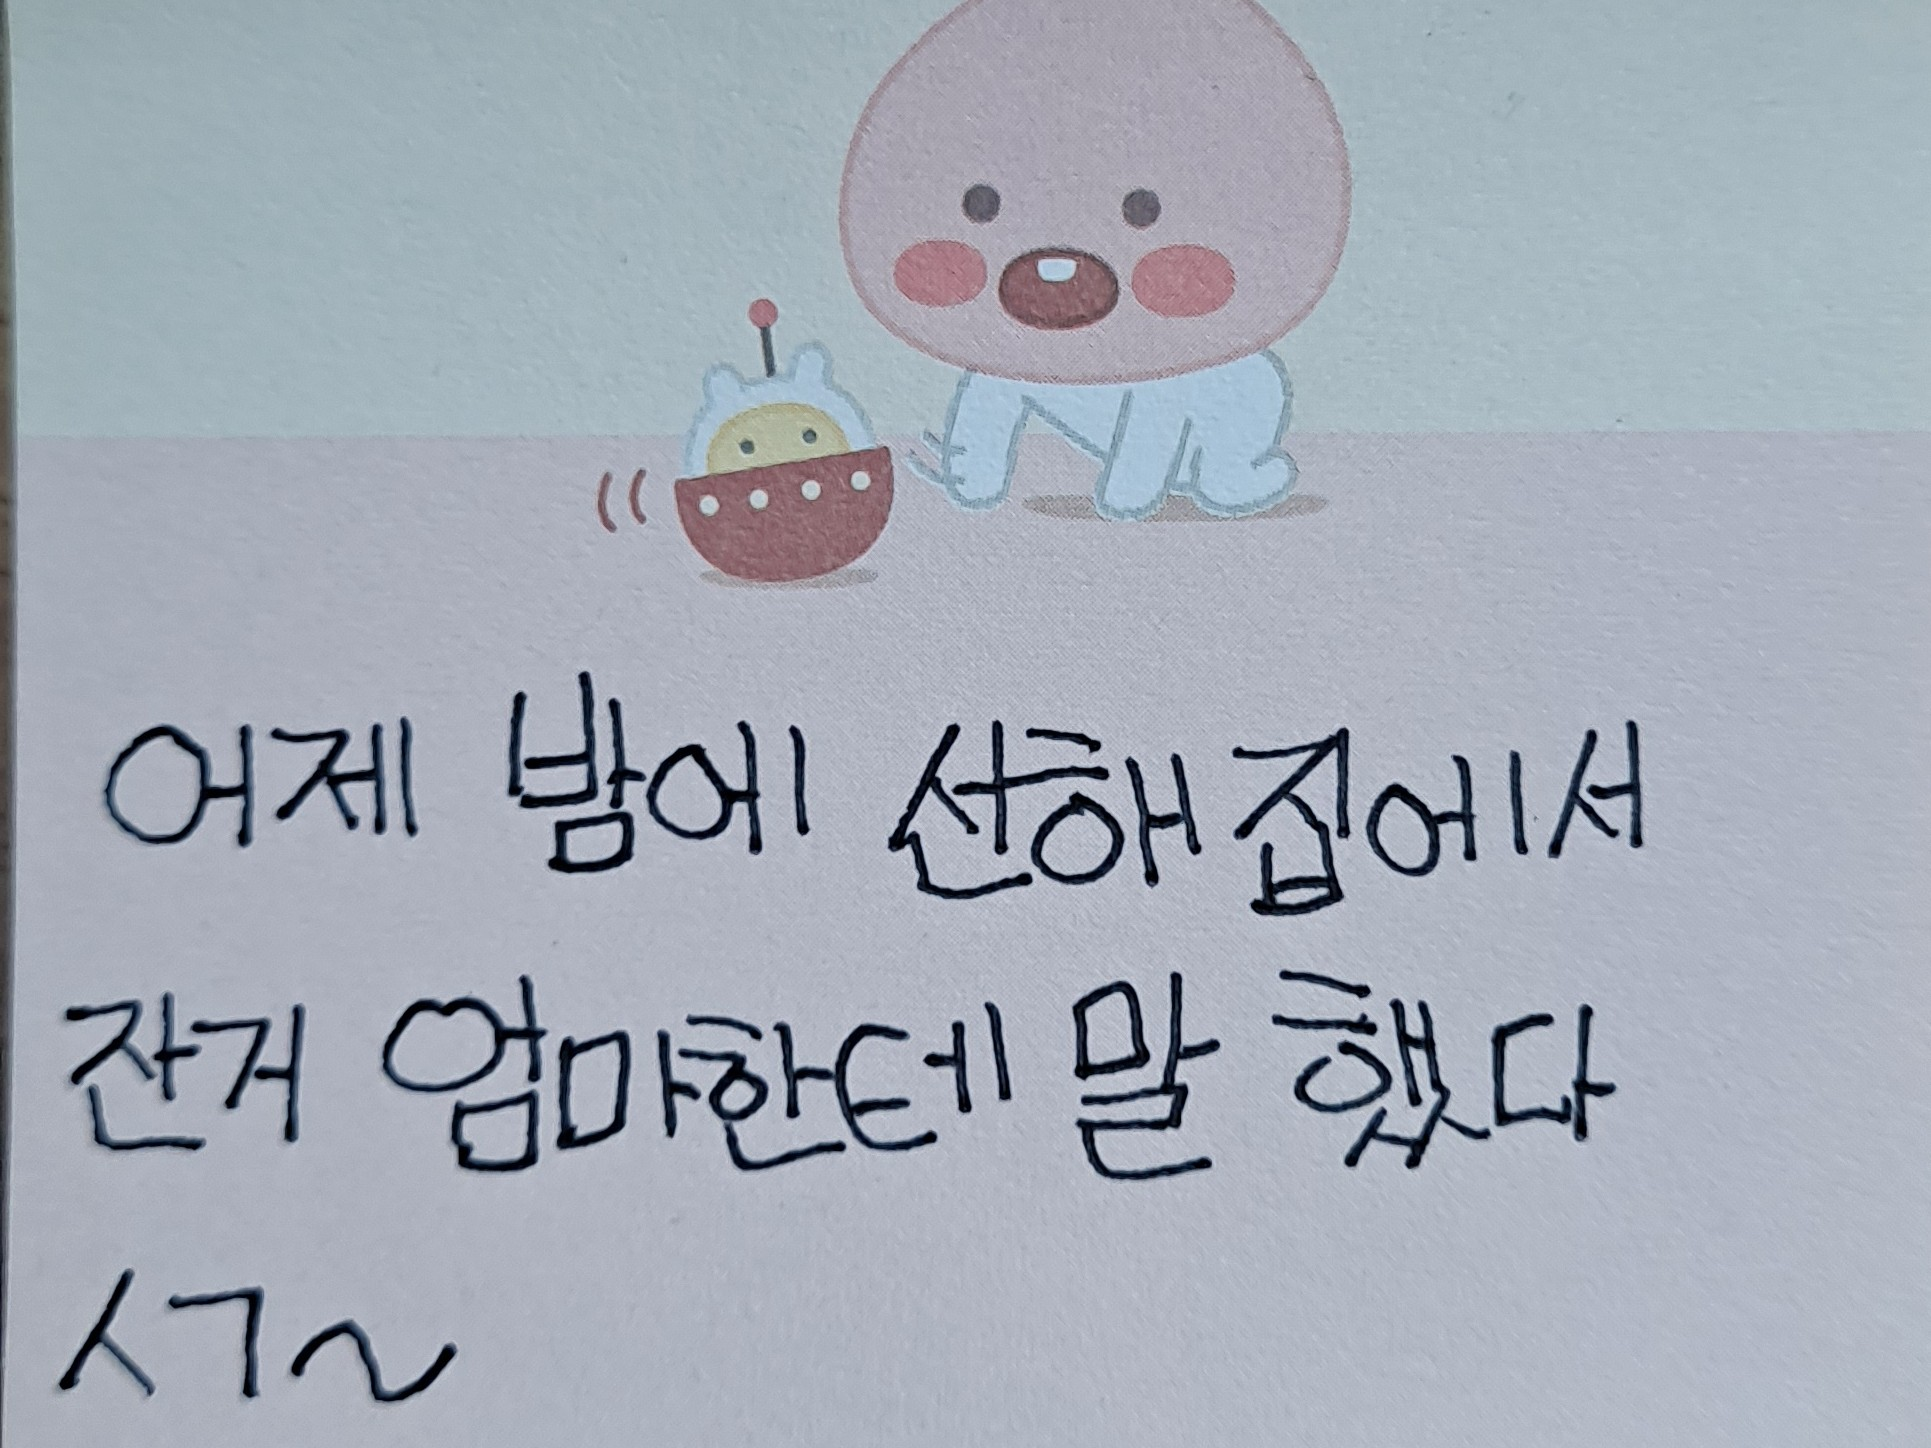 어제 밤에 산해집에서
잔거 엄마한데 말 했다
ㅅㄱ~